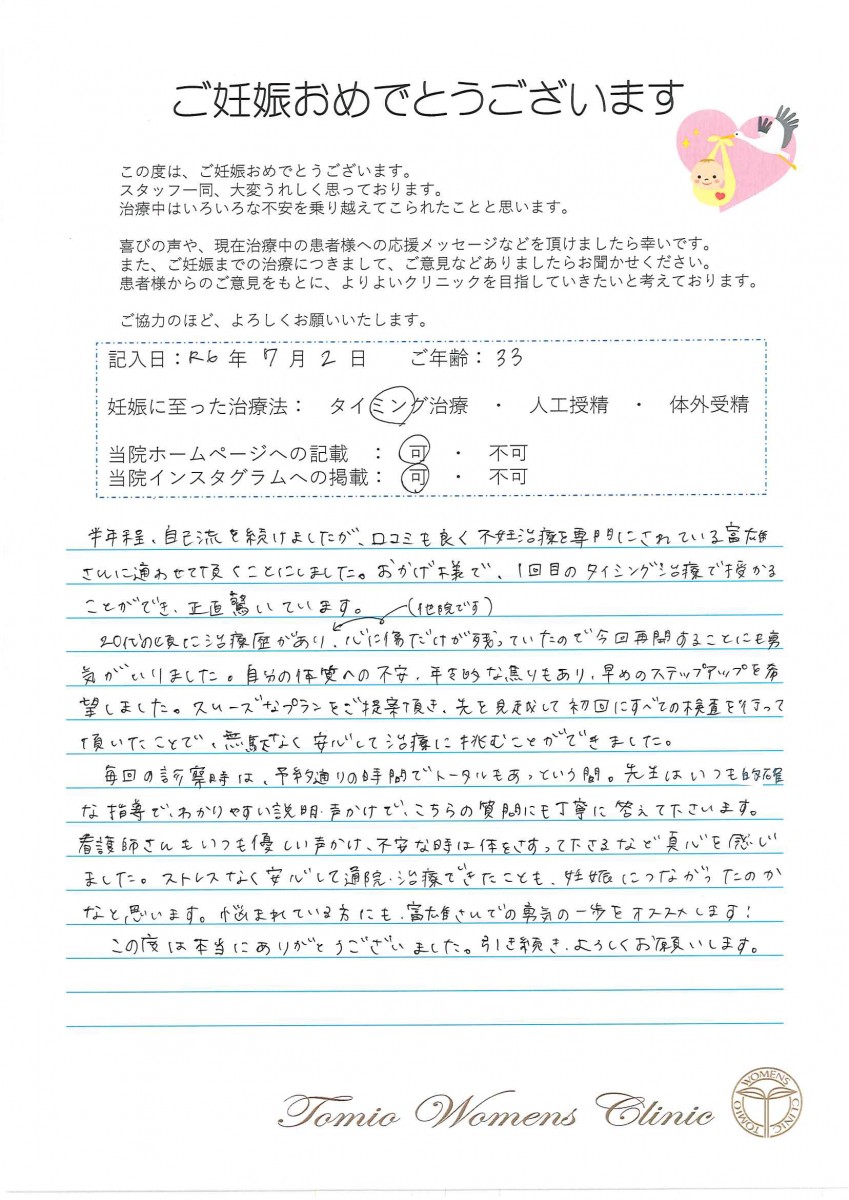 ご妊娠おめでとうございます
この度は、ご妊娠おめでとうございます。
スタッフ一同、大変うれしく思っております。
治療中はいろいろな不安を乗り越えてこられたことと思います。
喜びの声や、現在治療中の患者様への応援メッセージなどを頂けましたら幸いです。
また、ご妊娠までの治療につきまして、ご意見などありましたらお聞かせください。
患者様からのご意見をもとに、よりよいクリニックを目指していきたいと考えております。
ご協力のほど、よろしくお願いいたします。
記入日：R6 年 7 月 2 日 ご年齢：33
妊娠に至った治療法： タイミング治療 ・ 人工授精 ・ 体外受精
当院ホームページへの記載 ： 可 ・ 不可
当院インスタグラムへの掲載： 可 ・ 不可
半年程、自己流を続けましたが、口コミも良く不妊治療を専門にされている富雄
さんに通わせて頂くことにしました。おかげ様で、1回目のタイミング治療で授かる
ことができ、正直驚いています。 (他院です)
20代の頃に治療歴があり、心に傷だけが残っていたので今回再開することにも勇
気がいりました。自分の体質への不安、年を的な焦りもあり、早めのステップアップを希
望しました。スムーズなプランをご提案頂き、先を見越して初回にすべての検査を行って
頂いたことで、無駄なく安心して治療に挑むことができました。
毎回の診察時は、予約通りの時間でトータルもあっという間。先生はいつも的確
な指導で、わかりやすい説明・声かけで、こちらの質問にも丁寧に答えて下さいます。
看護師さんもいつも優しい声かけ、不安な時は体をさすって下さるなど真心を感じ
ました。ストレスなく安心して通院・治療できたことも、妊娠につながったのか
なと思います。悩まれている方にも、富雄さんでの勇気の一歩をオススメします！
この度は本当にありがとうございました。引き続き、よろしくお願いします。
Tomio Womens Clinic
TOMIO WOMENS CLINIC